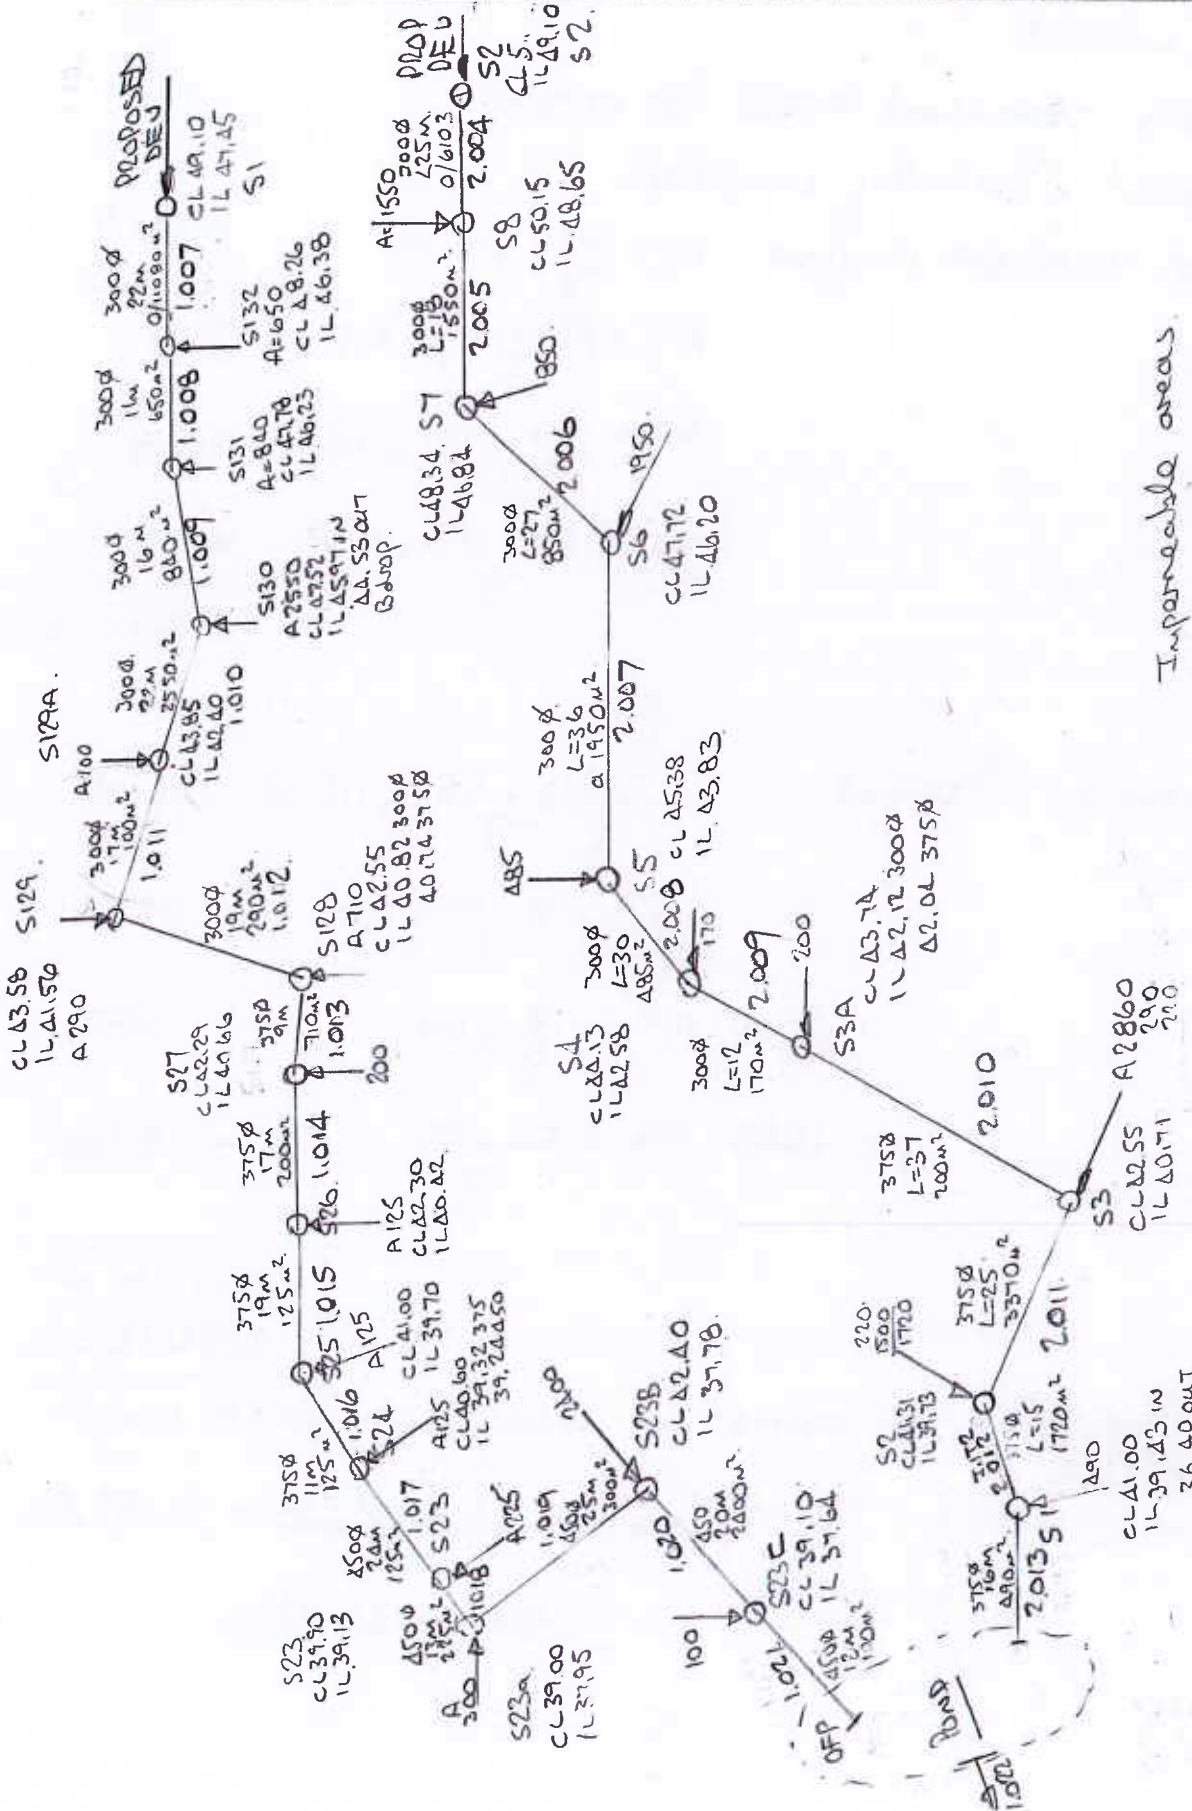 PROPOSED
DEV
CL 49.10
IL 47.45
S1
300Ø
22m
0/11090m²
1.007
S132
A=650
CL 48.26
IL 46.38
300Ø
11m
650m²
1.008
S131
A=840
CL 47.78
IL 46.23
300Ø
16m
840m²
1.009
S130
A2550
CL 47.52
IL 45.97 IN
44.53 OUT
B.drop.
300Ø
22m
2550m²
1.010
S129A.
A100
CL 43.85
IL 42.40
300Ø
17m
100m²
1.011
S129.
CL 43.58
IL 41.56
A 290
300Ø
19m
290m²
1.012.
S128
A710
CL 42.55
IL 40.82 300Ø
40.74 375Ø
375Ø
9m
710m²
1.013
S27
CL 42.29
IL 40.66
200
375Ø
17m
200m²
1.014
S26
A125
CL 42.30
IL 40.42
375Ø
19m
125m²
1.015
S25
A125
CL 41.00
IL 39.70
375Ø
11m
125m²
1.016
S24
A125
CL 40.60
IL 39.32 375
39.24 450
450Ø
24m
125m²
1.017
S23
A225
S23
CL 39.90
IL 39.13
450Ø
13m
225m²
1.018
A
300
S23a
CL 39.00
IL 37.95
1.019
450Ø
25m
300m²
2400
S23B
CL 42.40
IL 37.78
450
20m
2400m²
1.020
S23C
CL 39.10
IL 37.64
100
1.021
450Ø
12m
100m²
OFP
POND
1.022
PROP
DEV
S2
CL 5
IL 49.10
S2.
300Ø
L25m
0/6103
2.004
A=1550
S8
CL 50.15
IL 48.65
300Ø
L=18
1550m²
2.005
S7
CL 48.34
IL 46.84
850
300Ø
L=27
850m²
2.006
1950
S6
CL 47.72
IL 46.20
300Ø
L=36
a 1950m²
2.007
485
S5
CL 45.38
IL 43.83
300Ø
L=30
485m²
2.008
170
S4
CL 44.13
IL 42.58
300Ø
L=12
170m²
2.009
200
S3A
CL 43.74
IL 42.12 300Ø
42.04 375Ø
375Ø
L=37
200m²
2.010
A2860
290
220
S3
CL 42.55
IL 40.71
375Ø
L=25
3370m²
2.011
220
1500
1720
S2
CL 41.31
IL 39.73
2.012
375Ø
L=15
1720m²
490
S1
CL 41.00
IL 39.43 IN
36.40 OUT
375Ø
16m
490m²
2.013
Impermeable areas.